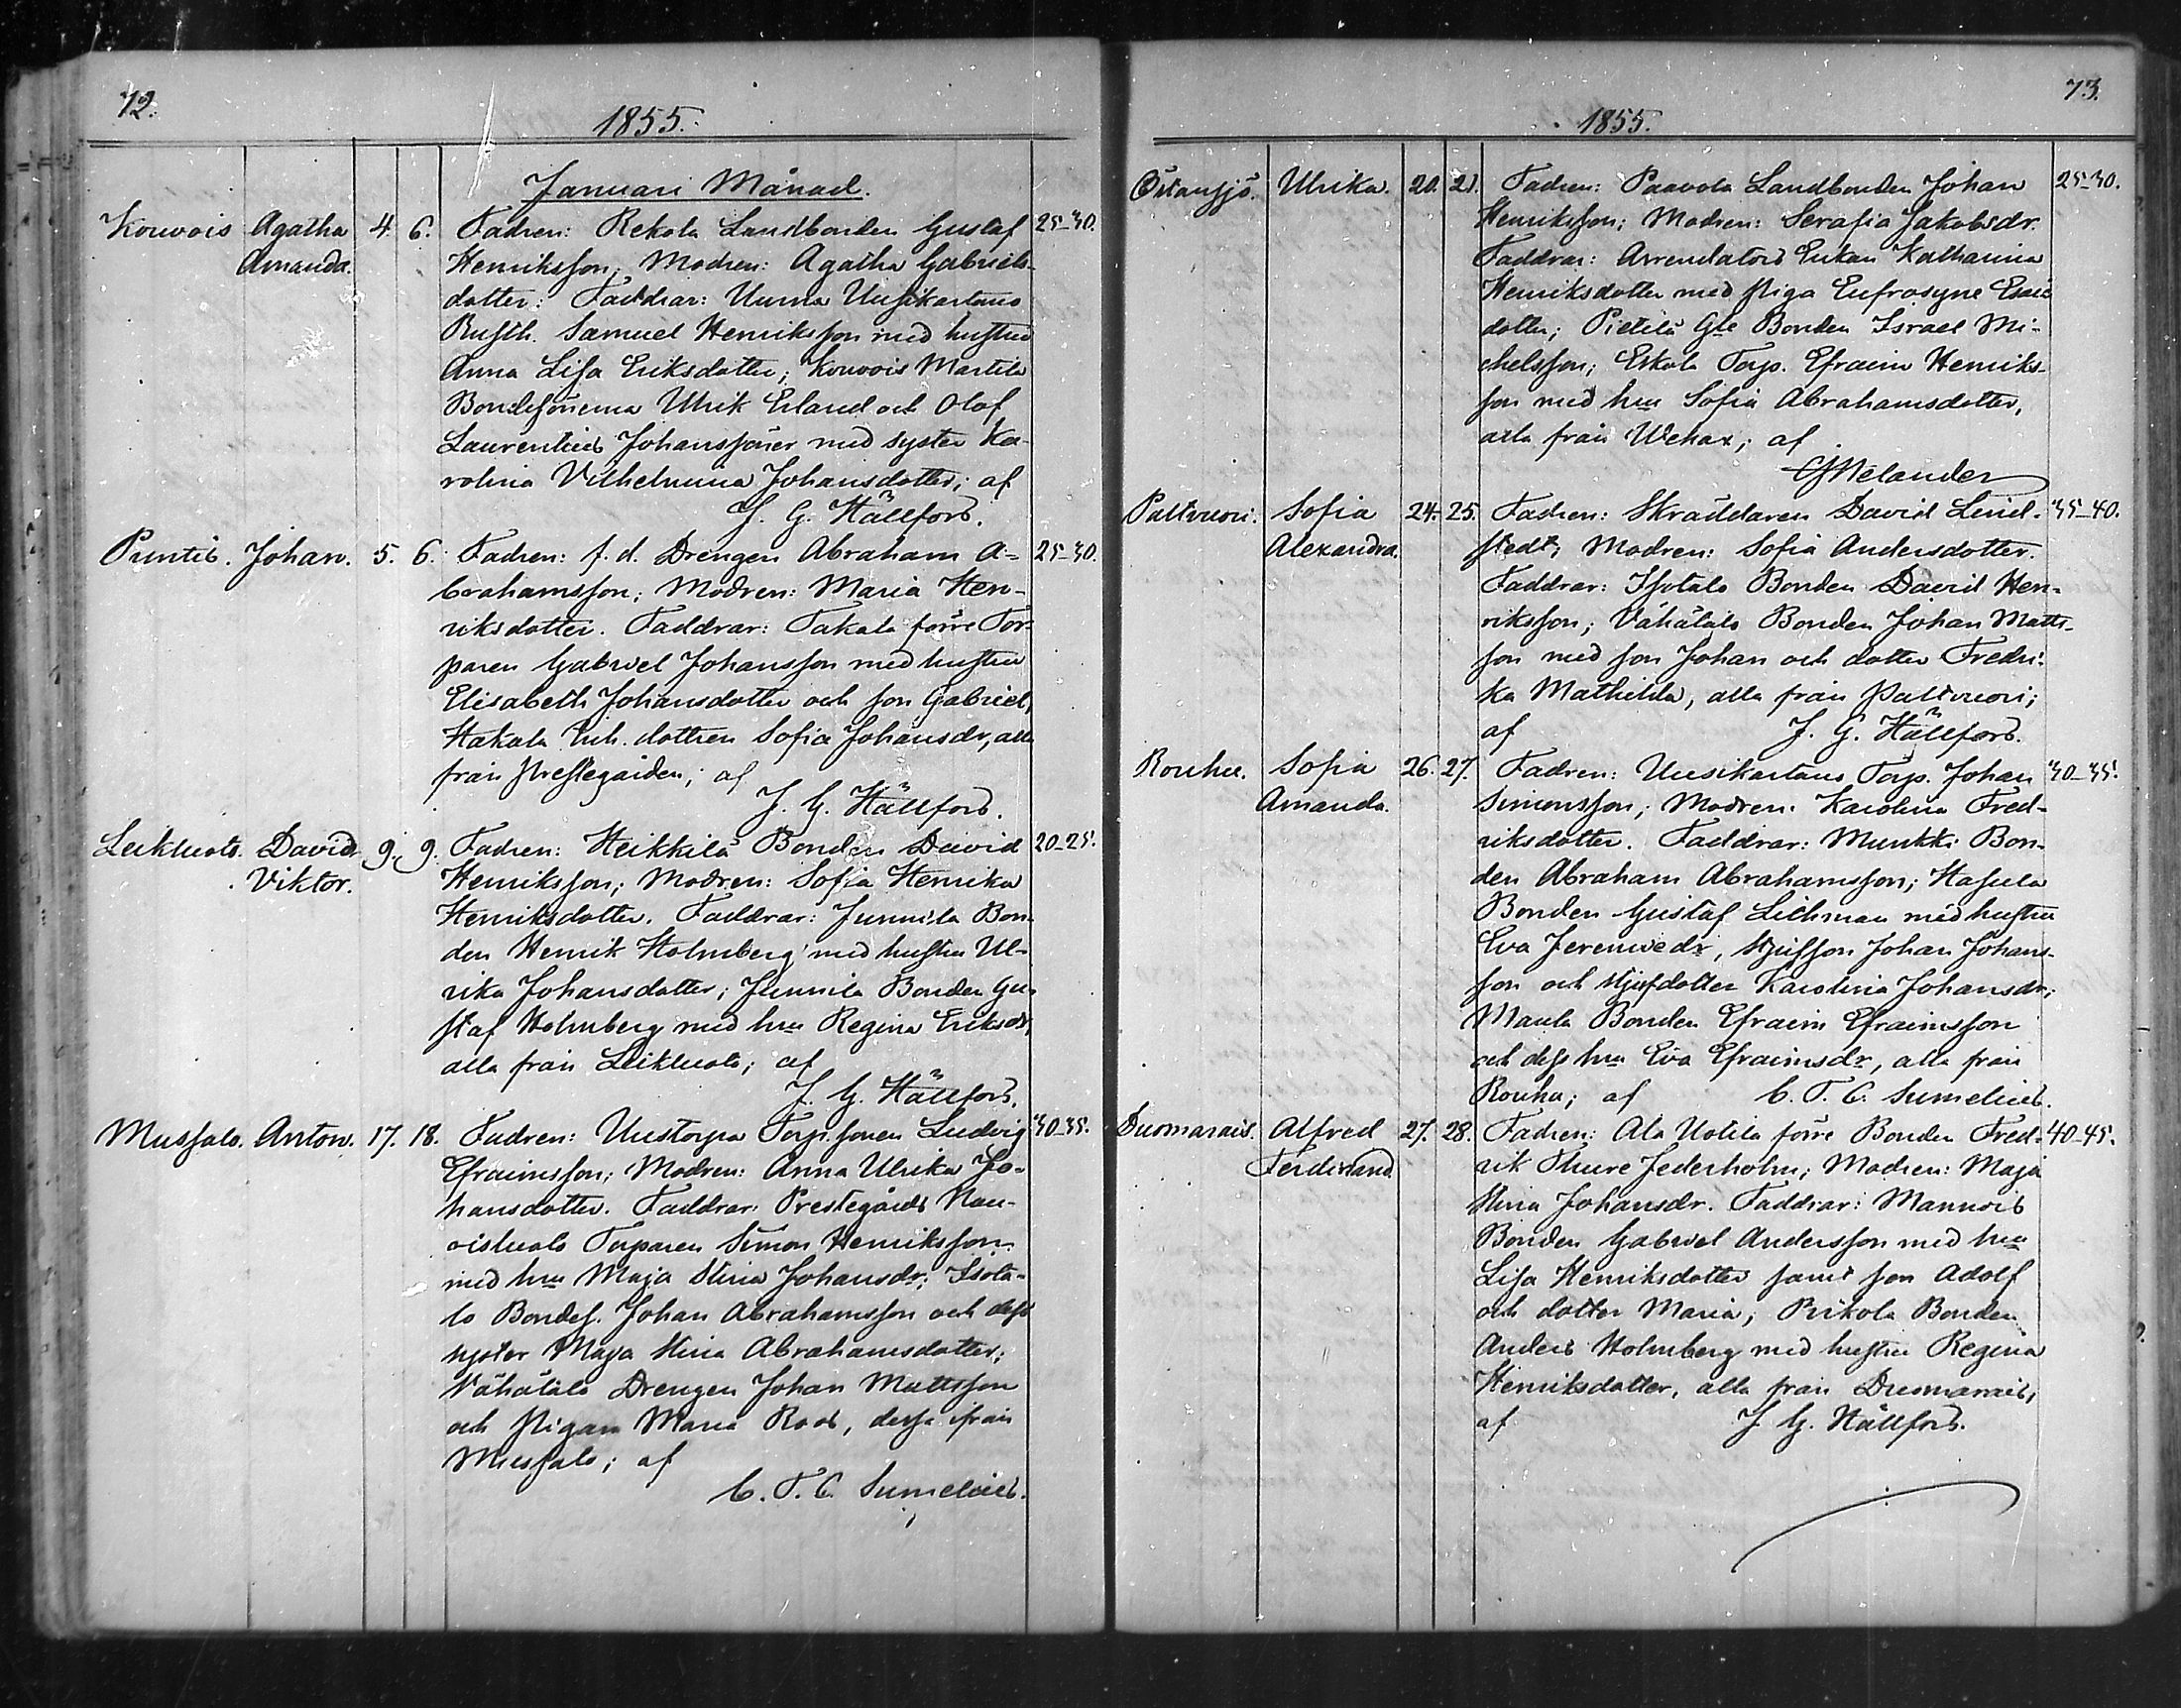 72.
1855.
Januari Månad.
Kouvois Agatha 4. 6. Fadren: Rekola Landbonden Gustaf 25-30.
Amanda. Henriksson; Modren: Agatha Gabriels-
dotter: Faddrar: Unma Uusikartano
Rusth. Samuel Henriksson med hustru
Anna Lisa Eriksdotter; Kouvois Martila
Bondesönerna Ulrik Erland och Olof
Laurentius Johanssöner med syster Ka-
rolina Vilhelmina Johansdotter; af
J. G. Hällfors.
Puntis. Johan. 5. 6. Fadren: f. d. Drengen Abraham A- 25-30.
brahamsson; Modren: Maria Hen-
riksdotter. Faddrar: Takala förre Tor-
paren Gabriel Johansson med hustru
Elisabeth Johansdotter och son Gabriel,
Hakala Inh. dottren Sofia Johansdr, alla
från Prestegården; af
J. G. Hällfors.
Leikluoto. David 9. 9. Fadren: Heikkilä Bonden David 20-25.
Viktor. Henriksson; Modren: Sofia Henrika
Henriksdotter. Faddrar: Junnila Bon-
den Henrik Holmberg med hustru Ul-
rika Johansdotter; Junnila Bonden Gu-
staf Holmberg med hru Regina Eriksdr,
alla från Leikluoto; af
J. G. Hällfors.
Mussalo. Anton. 17. 18. Fadren: Uustorpa Torp. sonen Ludvig 30-35.
Efraimsson; Modren: Anna Ulrika Jo-
hansdotter. Faddrar: Prestegårds Nau-
oistualo Torparen Simon Henriksson
med hru Maja Stina Johansdr; Isota-
lo Bondes. Johan Abrahamsson och dess
syster Maja Stina Abrahamsdotter;
Vähätalo Drengen Johan Mattsson
och Pigan Maria Roos, dessa ifrån
Mussalo; af
C. F. C. Sumelius.
73.
1855.
Östansjö. Ulrika. 20. 21. Fadren: Paavola Landbonden Johan 25-30.
Henriksson; Modren: Serafia Jakobsdr.
Faddrar: Arrendators Enkan Katharina
Henriksdotter med Piga Eufrosyne Esais
dotter; Pietilä Gle Bonden Israel Mi-
chelsson; Eskola Torp. Efraim Henriks-
son med hru Sofia Abrahamsdotter,
alla från Wehax; af
GMelander
Paltvuori. Sofia 24. 25. Fadren: Skräddaren David Lind- 35-40.
Alexandra. stedt; Modren: Sofia Andersdotter.
Faddrar: Isotalo Bonden David Hen-
riksson; Vähätalo Bonden Johan Matts-
son med son Johan och dotter Fredri-
ka Mathilda, alla från Paltvuori;
af J. G. Hällfors.
Rouhu. Sofia 26. 27. Fadren: Uusikartano Torp. Johan 30-35.
Amanda. Simonsson; Modren: Karolina Fred-
riksdotter. Faddrar: Munkki Bon-
den Abraham Abrahamsson; Hasula
Bonden Gustaf Lithman med hustru
Eva Jeremiædr, Stjufson Johan Johans-
son och stjufdotter Karolina Johansdr;
Maula Bonden Efraim Efraimsson
och dess hru Eva Efraimsdr, alla från
Rouhu; af C. F. C. Sumelius.
Duomarais. Alfred 27. 28. Fadren: Ala Uotila förre Bonden Fred- 40-45.
Ferdinand. rik Thure Jederholm; Modren: Maja
Stina Johansdr. Faddrar: Mannois
Bonden Gabriel Andersson med hru
Lisa Henriksdotter samt son Adolf
och dotter Maria; Prikola Bonden
Anders Holmberg med hustru Regina
Henriksdotter, alla från Duomarais,
af J. G. Hällfors.